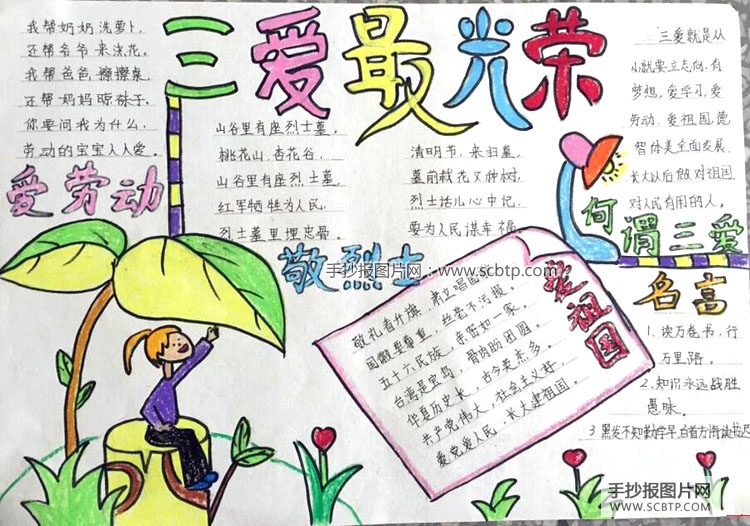 三爱最光荣
我帮奶奶洗萝卜,
还帮爷爷来浇花。
我帮爸爸擦擦桌
还帮妈妈晾袜子。
你要问我为什么,
劳动的宝宝人人爱。
爱劳动
山谷里有座烈士墓,
桃花山,杏花谷,
山谷里有座烈士墓,
红军牺牲为人民,
烈士墓里埋忠骨。
清明节,来扫墓,
墓前栽花又种树,
烈士话儿心中记,
要为人民谋幸福。
敬烈士
三爱就是从
小就要立志向、有
梦想,爱学习,爱
劳动、爱祖国,德
智体美全面发展,
长大以后做对祖国、
对人民有用的人。
何谓三爱
爱祖国
敬礼看升旗,肃立唱国
国徽要尊重,丝毫不污损。
五十六民族,亲密如一家。
台湾是宝岛,骨肉盼团圆。
华夏历史长,古今英杰多。
共产党伟大,社会主义好。
爱党爱人民,长大建祖国。
名言
1.读万卷书,行
万里路。
2.知识永远战胜
愚昧。
3.黑发不知勤学早,白首方悔读书迟
手抄报图片网:www.scbtp.com
手抄报图片网
WWW.SCBTP.COM